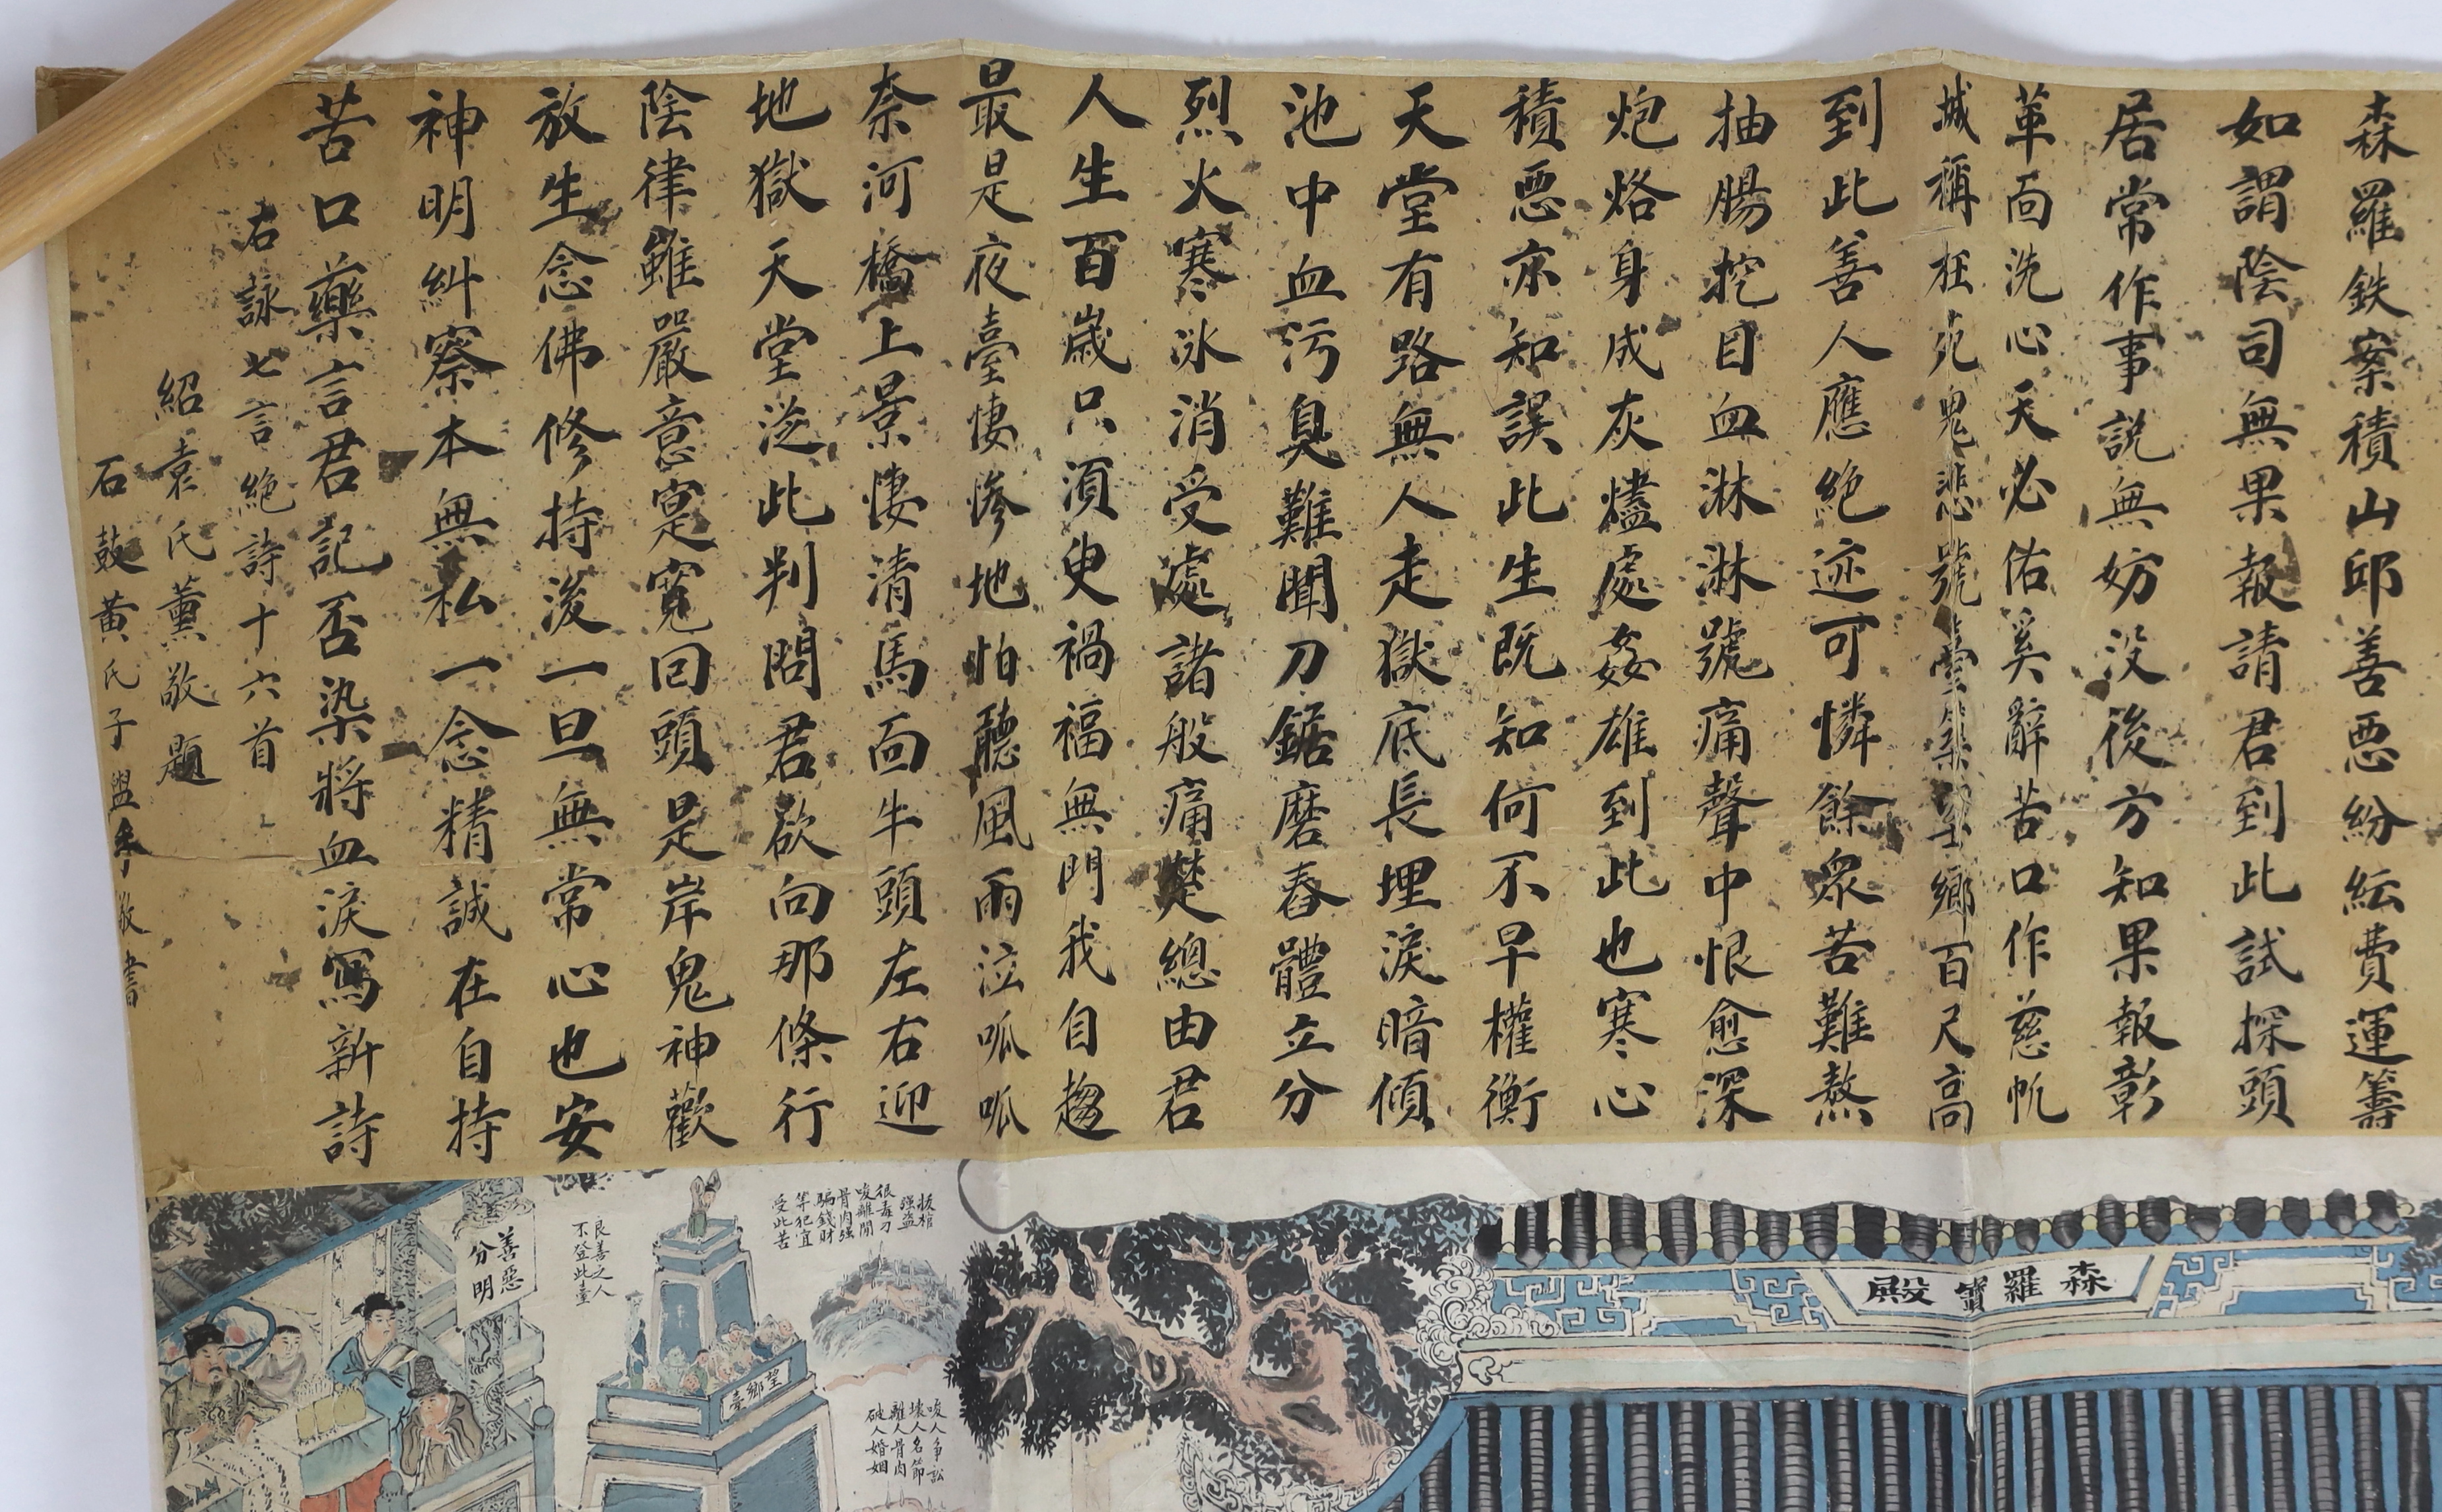 森羅鉄案積山邱善惡紛紜費運籌
如謂陰司無果報請君到此試探頭
居常作事説無妨没後方知果報彰
革面洗心天必佑奚辭苦口作慈帆
城稱枉死鬼悲號臺築望鄉百尺高
到此善人應絶迹可憐餘衆苦難熬
抽腸挖目血淋淋號痛聲中恨愈深
炮烙身成灰燼處姦雄到此也寒心
積惡亦知誤此生既知何不早權衡
天堂有路無人走獄底長埋淚暗傾
池中血污臭難聞刀鋸磨舂體立分
烈火寒冰消受處諸般痛楚總由君
人生百歲只須臾禍福無門我自趨
最是夜臺悽慘地怕聽風雨泣呱呱
奈河橋上景悽清馬面牛頭左右迎
地獄天堂從此判問君欲向那條行
陰律雖嚴意寔寬回頭是岸鬼神歡
放生念佛修持後一旦無常心也安
神明糾察本無私一念精誠在自持
苦口藥言君記否染將血淚寫新詩
右詠七言絶詩十六首
紹袁氏薰敬題
石鼓黄氏子 敬書
善惡
分明
良善之人
不登此臺
望鄉臺
抜棺
强盗
很毒刀
唆離間
骨肉强
騙錢財
等犯宜
受此苦
唆人爭訟
壞人名節
離人骨肉
破人婚姻
森羅寶殿